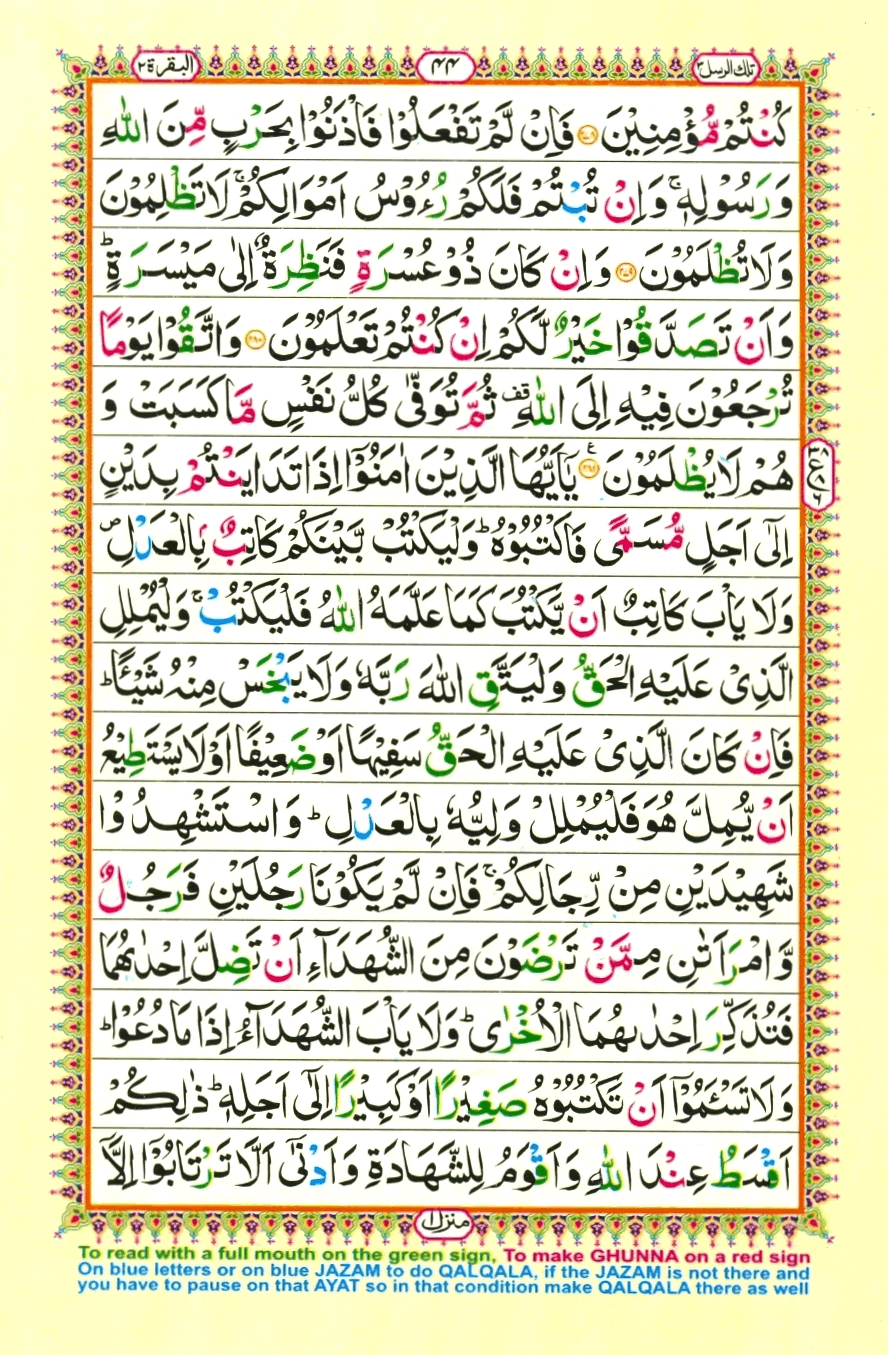 تلك الرسل ٣ ٤٤ البقرة ٢
كُنْتُمْ مُّؤْمِنِيْنَ ﴿٢٧٨﴾ فَاِنْ لَّمْ تَفْعَلُوْا فَاْذَنُوْا بِحَرْبٍ مِّنَ اللّٰهِ
وَرَسُوْلِهٖ ۚ وَاِنْ تُبْتُمْ فَلَكُمْ رُءُوْسُ اَمْوَالِكُمْ ۚ لَا تَظْلِمُوْنَ
وَلَا تُظْلَمُوْنَ ﴿٢٧٩﴾ وَاِنْ كَانَ ذُوْ عُسْرَةٍ فَنَظِرَةٌ اِلٰى مَيْسَرَةٍ ؕ
وَاَنْ تَصَدَّقُوْا خَيْرٌ لَّكُمْ اِنْ كُنْتُمْ تَعْلَمُوْنَ ﴿٢٨٠﴾ وَاتَّقُوْا يَوْمًا
تُرْجَعُوْنَ فِيْهِ اِلَى اللّٰهِ قف ثُمَّ تُوَفّٰى كُلُّ نَفْسٍ مَّا كَسَبَتْ وَ
هُمْ لَا يُظْلَمُوْنَ ﴿٢٨١﴾ يٰۤاَيُّهَا الَّذِيْنَ اٰمَنُوْۤا اِذَا تَدَايَنْتُمْ بِدَيْنٍ
اِلٰۤى اَجَلٍ مُّسَمًّى فَاكْتُبُوْهُ ؕ وَلْيَكْتُبْ بَّيْنَكُمْ كَاتِبٌۢ بِالْعَدْلِ ۪
وَلَا يَاْبَ كَاتِبٌ اَنْ يَّكْتُبَ كَمَا عَلَّمَهُ اللّٰهُ فَلْيَكْتُبْ ۚ وَلْيُمْلِلِ
الَّذِىْ عَلَيْهِ الْحَقُّ وَلْيَتَّقِ اللّٰهَ رَبَّهٗ وَلَا يَبْخَسْ مِنْهُ شَيْـًٔا ؕ
فَاِنْ كَانَ الَّذِىْ عَلَيْهِ الْحَقُّ سَفِيْهًا اَوْ ضَعِيْفًا اَوْ لَا يَسْتَطِيْعُ
اَنْ يُّمِلَّ هُوَ فَلْيُمْلِلْ وَلِيُّهٗ بِالْعَدْلِ ؕ وَاسْتَشْهِدُوْا
شَهِيْدَيْنِ مِنْ رِّجَالِكُمْ ۚ فَاِنْ لَّمْ يَكُوْنَا رَجُلَيْنِ فَرَجُلٌ
وَّامْرَاَتٰنِ مِمَّنْ تَرْضَوْنَ مِنَ الشُّهَدَآءِ اَنْ تَضِلَّ اِحْدٰىهُمَا
فَتُذَكِّرَ اِحْدٰىهُمَا الْاُخْرٰى ؕ وَلَا يَاْبَ الشُّهَدَآءُ اِذَا مَا دُعُوْا ؕ
وَلَا تَسْـَٔمُوْۤا اَنْ تَكْتُبُوْهُ صَغِيْرًا اَوْ كَبِيْرًا اِلٰۤى اَجَلِهٖ ؕ ذٰلِكُمْ
اَقْسَطُ عِنْدَ اللّٰهِ وَاَقْوَمُ لِلشَّهَادَةِ وَاَدْنٰۤى اَلَّا تَرْتَابُوْۤا اِلَّاۤ
منزل ١
To read with a full mouth on the green sign, To make GHUNNA on a red sign
On blue letters or on blue JAZAM to do QALQALA, if the JAZAM is not there and
you have to pause on that AYAT so in that condition make QALQALA there as well